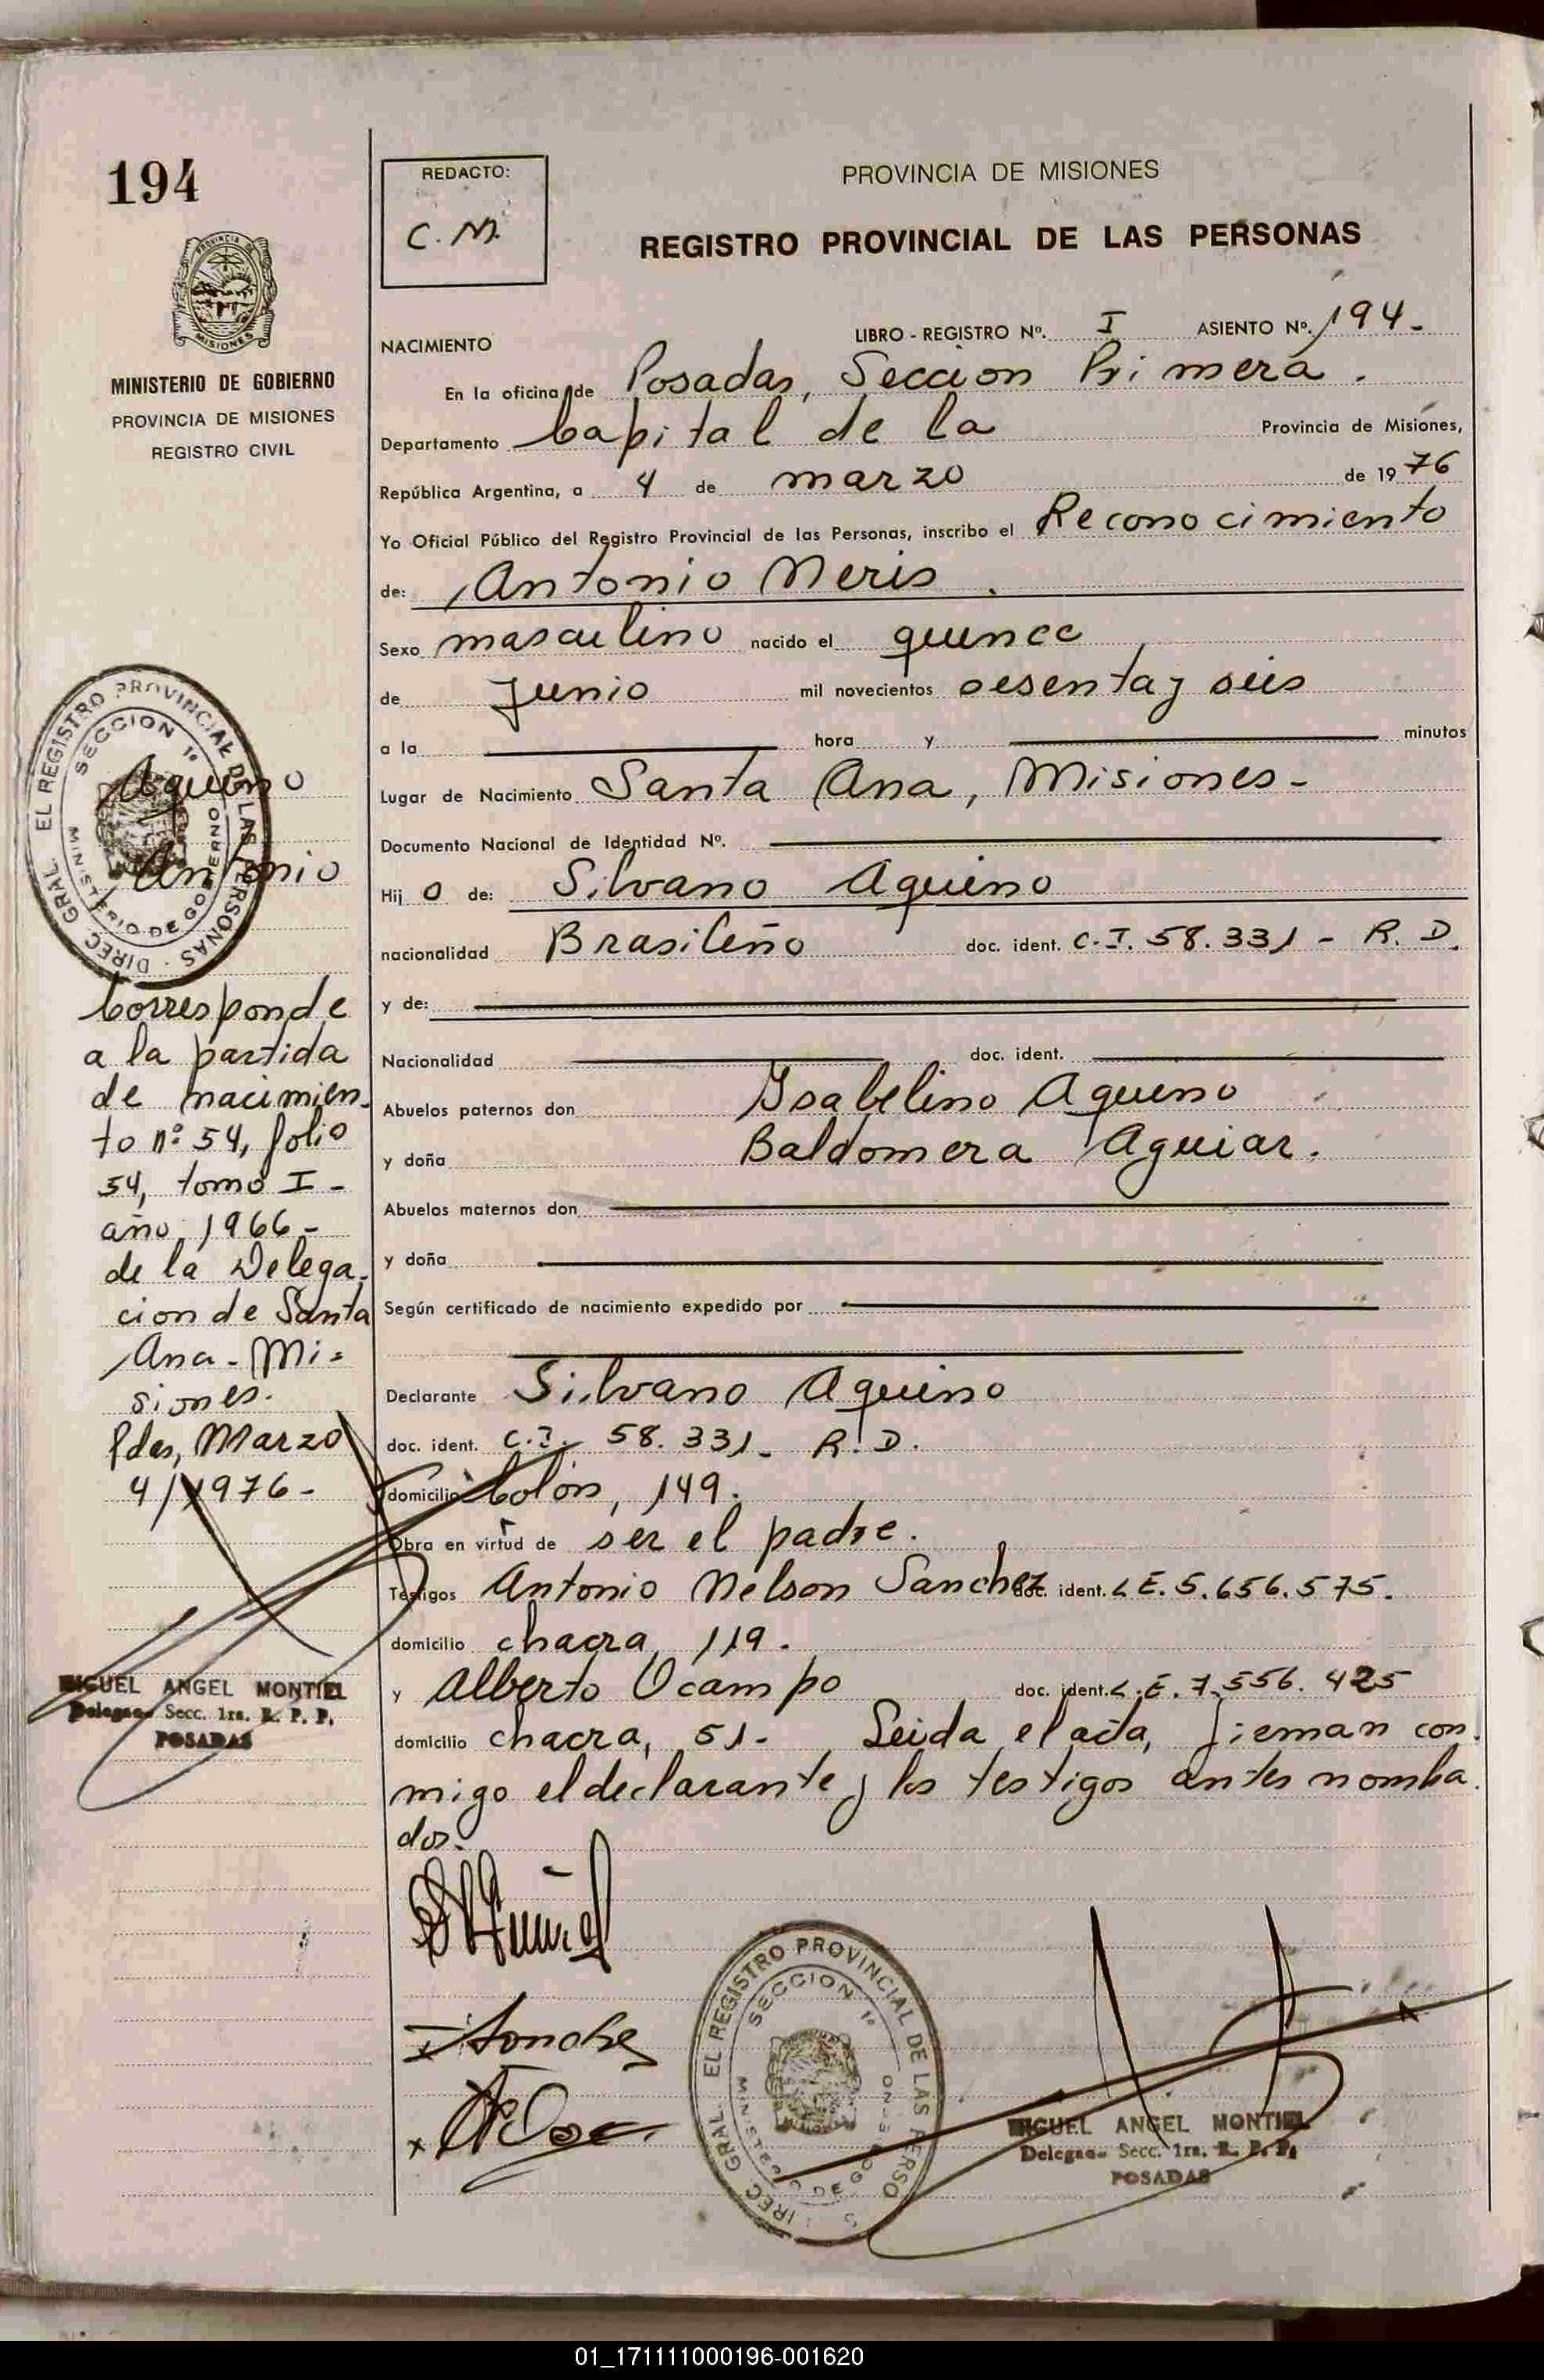 194
REDACTO:
C. M.
PROVINCIA DE MISIONES
REGISTRO PROVINCIAL DE LAS PERSONAS
MISIONES
MINISTERIO DE GOBIERNO
PROVINCIA DE MISIONES
REGISTRO CIVIL
NACIMIENTO
LIBRO - REGISTRO Nº. I ASIENTO Nº. 194.
En la oficina de Posadas, Seccion Primera.
Departamento Capital de la Provincia de Misiones,
República Argentina, a 4 de marzo de 1976
Yo Oficial Público del Registro Provincial de las Personas, inscribo el Reconocimiento
de: Antonio Neris.
Sexo masculino nacido el quince
de Junio mil novecientos sesenta y seis
a la hora y minutos
Lugar de Nacimiento Santa Ana, Misiones-
Documento Nacional de Identidad Nº.
Hij o de: Silvano Aquino
nacionalidad Brasileño doc. ident. C.I. 58.331 - R. D.
y de:
Nacionalidad doc. ident.
Abuelos paternos don Ysabelino Aquino
y doña Baldomera Aguiar.
Abuelos maternos don
y doña
Según certificado de nacimiento expedido por
Declarante Silvano Aquino
doc. ident. C.I. 58.331- R.D.
domicilio Colón, 149.
Obra en virtud de ser el padre.
Testigos Antonio Nelson Sanchez doc. ident. L E. 5.656.575.
domicilio chacra, 119.
y Alberto Ocampo doc. ident. L.E. 7.556.425
domicilio chacra, 51- Leida el acta, firman con
migo el declarante y los testigos antes nomba.
dos.
DIREC. GRAL. EL REGISTRO PROVINCIAL DE LAS PERSONAS
SECCION 1º
MINISTERIO DE GOBIERNO
Aquino
Antonio
Corresponde
a la partida
de nacimien-
to nº 54, folio
54, tomo I-
año 1966-
de la Delega-
cion de Santa
Ana - Mi-
siones.
Pdas, Marzo
4/1976-
MIGUEL ANGEL MONTIEL
Delegado Secc. 1ra. R. P. P.
POSADAS
DIREC GRAL. EL REGISTRO PROVINCIAL DE LAS PERSO S
SECCION 1º
MINISTE O DE GO
MIGUEL ANGEL MONTIEL
Delegado Secc. 1ra. R. P. P.
POSADAS
01_171111000196-001620